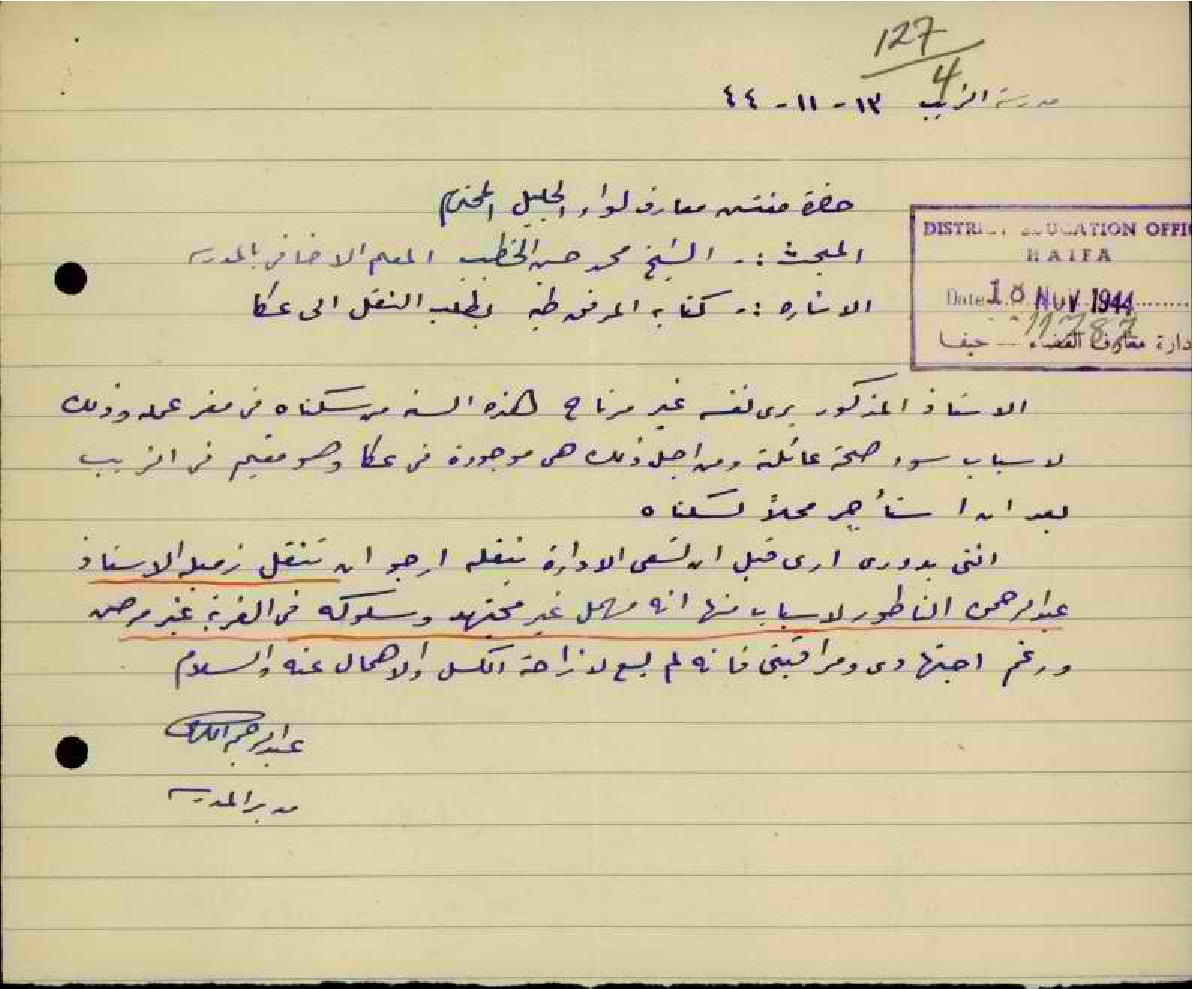 127
4
مدرسة الزيب ١٣ - ١١ - ٤٤
حضرة مفتش معارف لواء الجليل المحترم
المبحث :- الشيخ محمد حسن الخطيب المعلم الاضافي بالمدرسة
الاشاره :- كتابه المرفق طيه بطلب النقل الى عكا
DISTRICT EDUCATION OFFI
HAIFA
Date 18 NOV 1944
11787
دارة معارف القضاء - حيفا
الاستاذ المذكور يرى نفسه غير مرتاح هذه السنه من سكناه في مقر عمله وذلك
لاسباب سوء صحة عائلته ومن اجل ذلك هي موجودة في عكا وهو مقيم في الزيب
بعد ان استأجر محلاً لسكناه
انني بدوري ارى قبل ان تسعى الادارة بنقله ارجو ان تنقل زميله الاستاذ
عبد الرحمن الناطور لاسباب منها انه مهمل غير مجتهد وسلوكه في القرية غير مرضي
ورغم اجتهادي ومراقبتي فانه لم يسع لازاحة الكسل والاهمال عنه والسلام
عبد الرحيم
مدير المدرسة